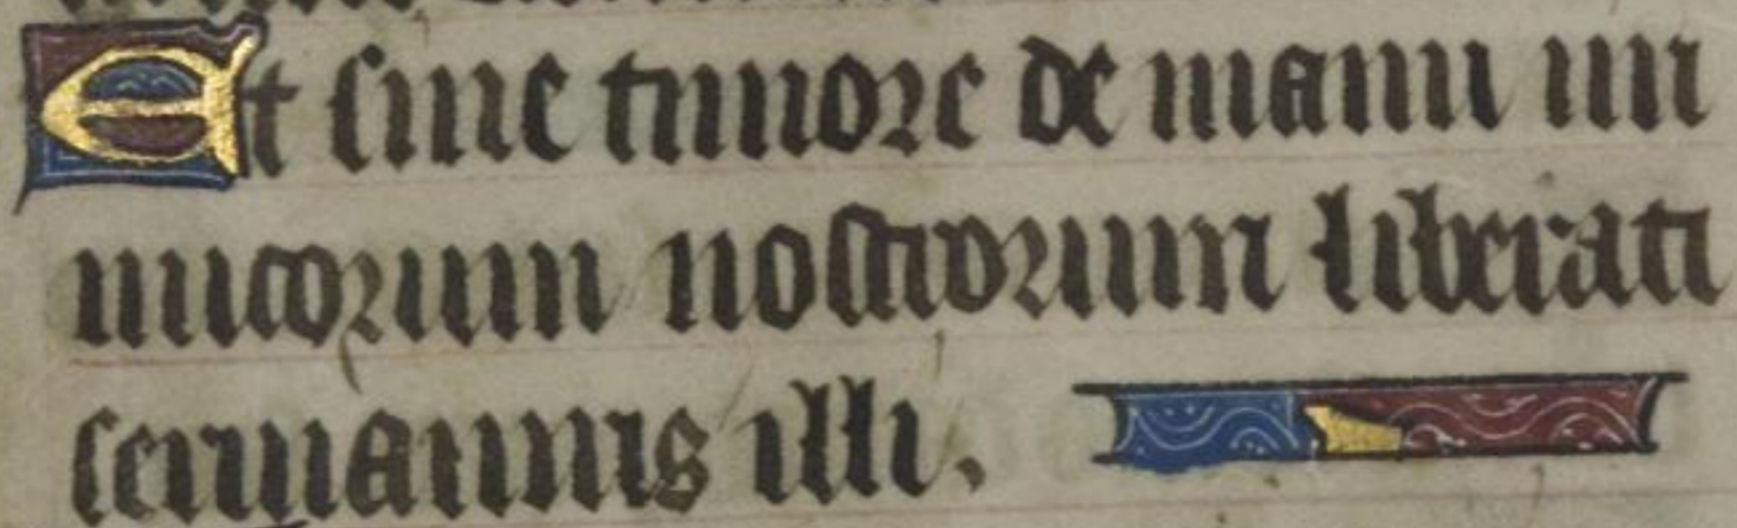 Et sine timore de manu ini
micorum nostrorum liberati
seruiamus illi.